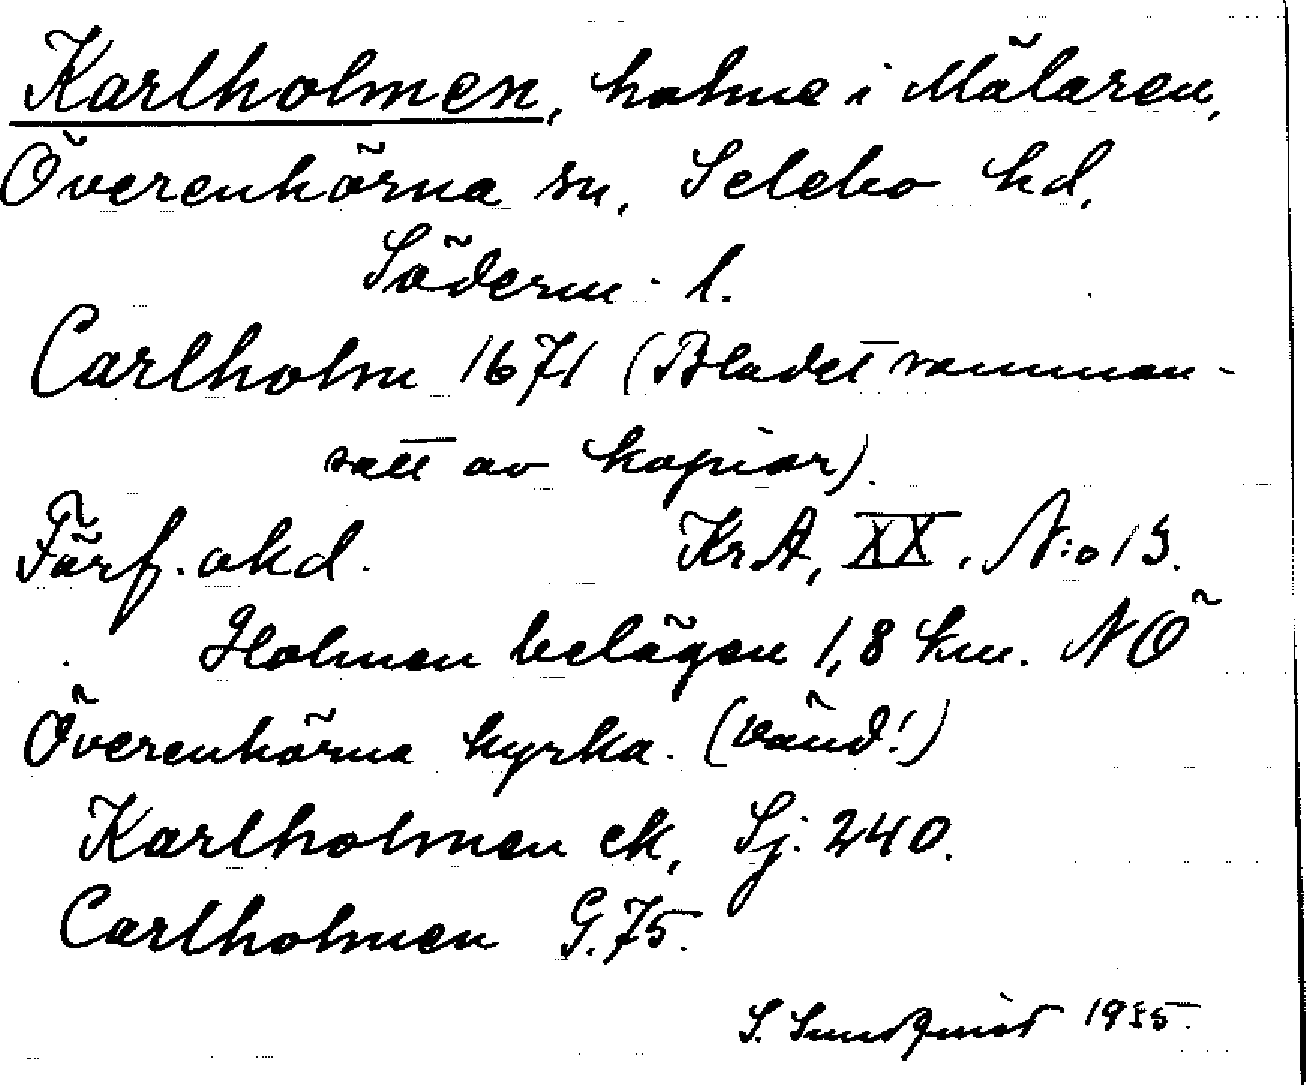 Karlholmen, holme i Mälaren,
Överenhörna sn, Selebo hd,
Söderm. l.
Carlholm 1671 (Bladet samman-
satt av kopior).
Förf. okd. KrA, XX, N:o 13.
Holmen belägen 1,8 km. NÖ
Överenhörna kyrka. (vänd!)
Karlholmen ek, Sj. 240.
Carlholmen G. 75.
S. Sundqvist 1935.